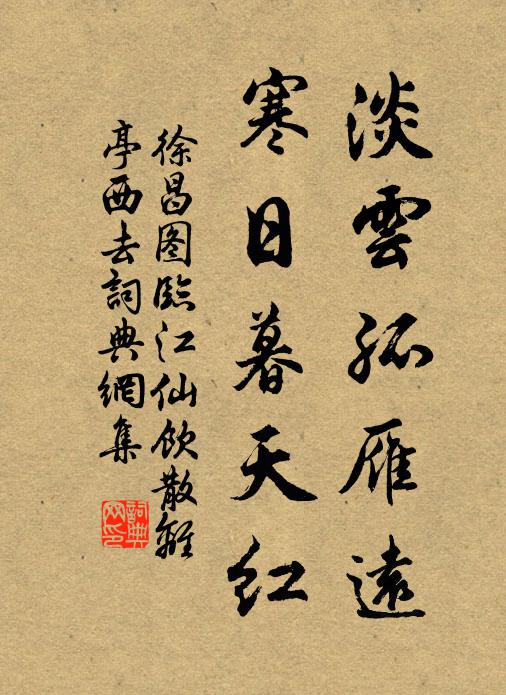 淡雲孤雁遠
寒日暮天紅
徐昌图臨江仙飲散離
亭西去詞典網集
詞典网印